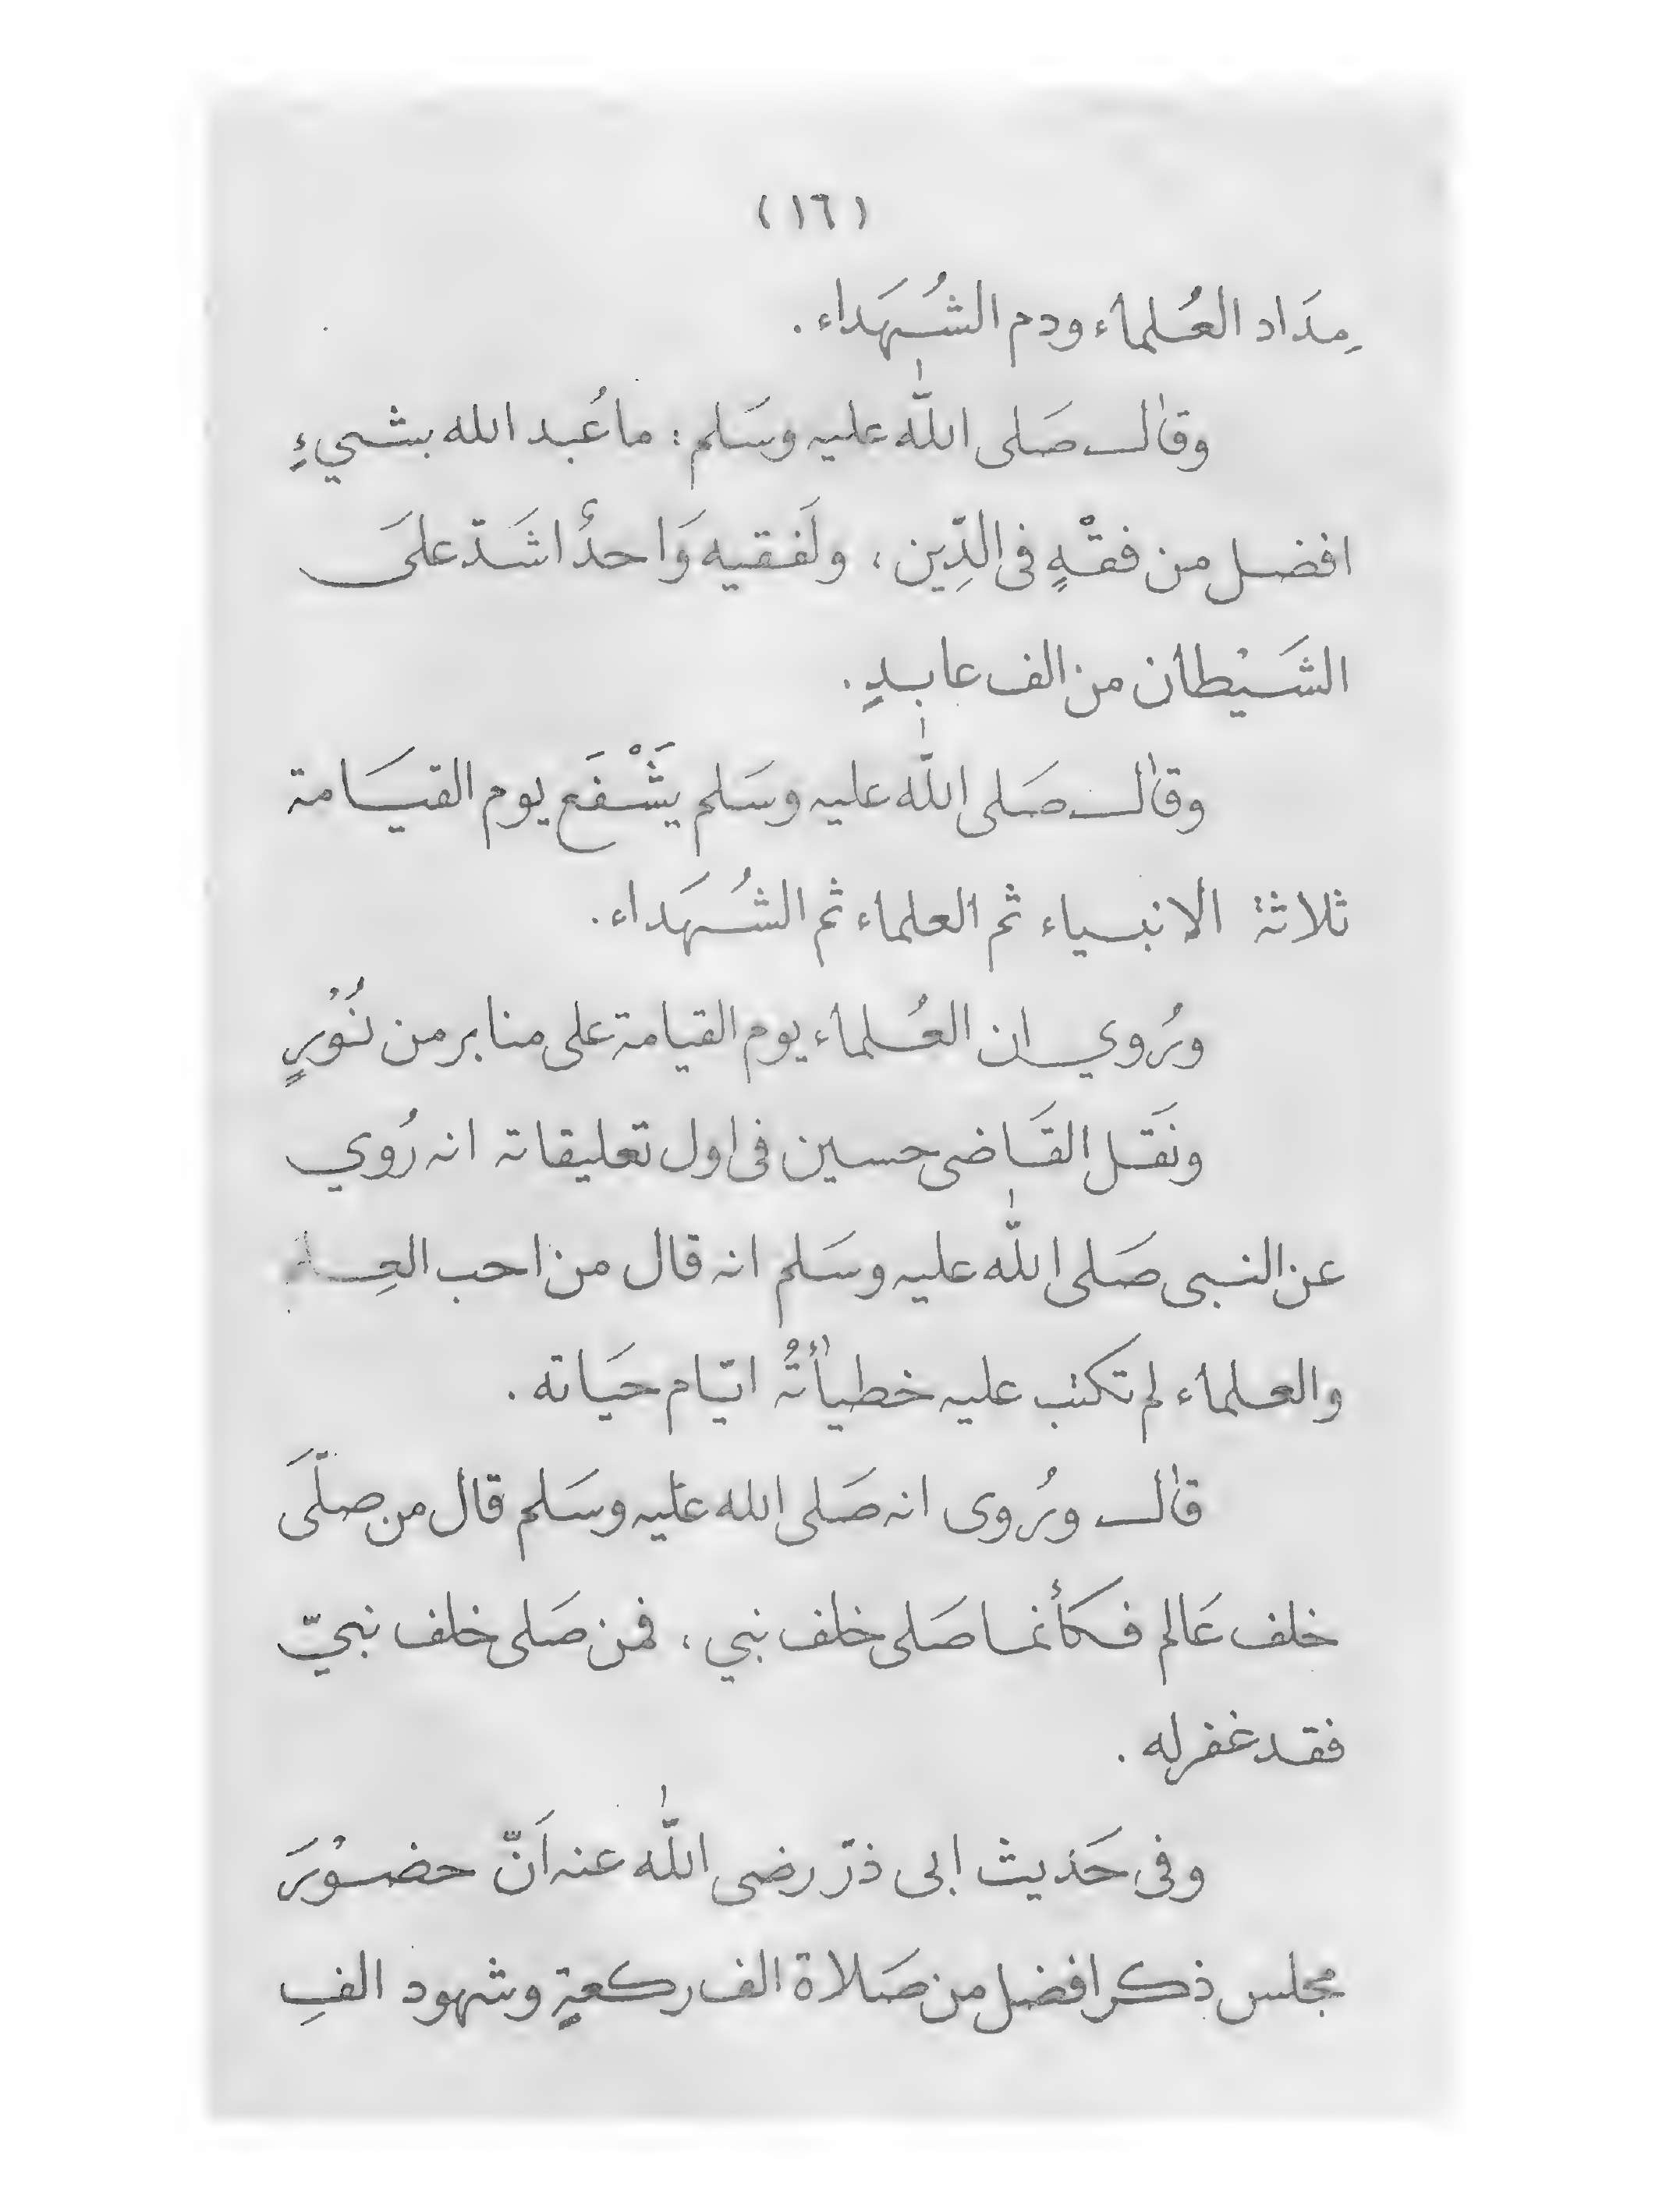 (١٦)
مِدَاد العُلماء ودم الشُهَداء .
وقال صَلى الله عليه وسَلم : ما عُبد الله بشيءٍ
افضل من فقْهٍ فى الدِّين ، ولَفقيه وَاحدٌ اشَدّ علىَ
الشَيْطان من الف عابدٍ .
وقال صَلى الله عليه وسَلم يَشْفَع يوم القيَامة
ثلاثة الانبياء ثم العلماء ثم الشُهَداء .
ورُوي ان العُلماء يوم القيامة على منابر من نُوْرٍ
ونَقل القَاضى حسين فى اول تعليقاته انه رُوي
عن النبى صَلى الله عليه وسَلم انه قال من احب العِلم
والعلماء لم تكتب عليه خطيأتُه ايّام حيَاته .
قال ورُوى انه صَلى الله عليه وسَلم قال من صلّىَ
خلف عَالم فكأنما صَلى خلف نبي ، فمن صَلى خلف نبيّ
فقد غفر له .
وفى حَديث ابى ذرّ رضى الله عنه اَنّ حضوْرَ
مجلس ذكر افضل من صَلاة الف ركعةٍ وشهود الفِ